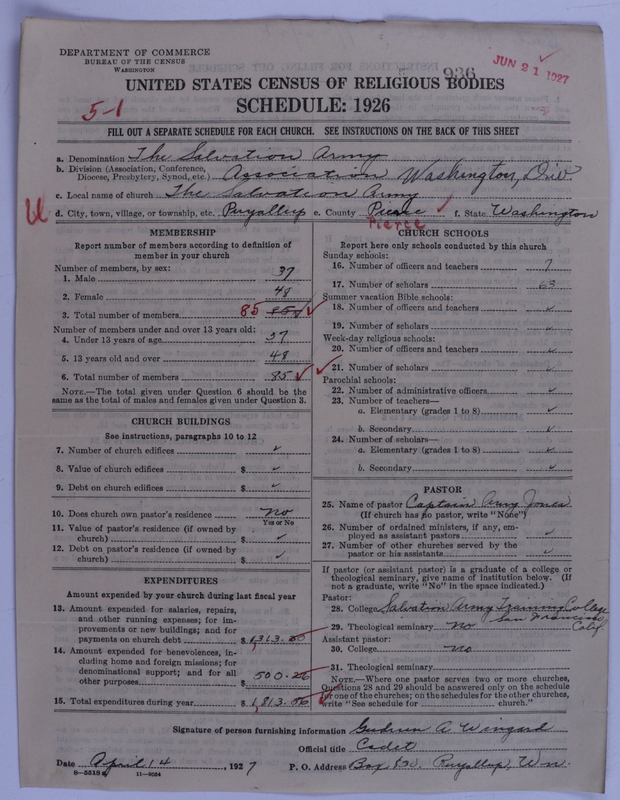 DEPARTMENT OF COMMERCE
BUREAU OF THE CENSUS
WASHINGTON
936
JUN 21 1927
UNITED STATES CENSUS OF RELIGIOUS BODIES
SCHEDULE: 1926
5-1
FILL OUT A SEPARATE SCHEDULE FOR EACH CHURCH. SEE INSTRUCTIONS ON THE BACK OF THIS SHEET
a. Denomination The Salvation Army
b. Division (Association, Conference, Diocese, Presbytery, Synod, etc.) Association Washington, Div.
c. Local name of church The Salvation Army
U d. City, town, village, or township, etc. Puyallup e. County Pierce ✓ f. State Washington
Pierce
MEMBERSHIP
Report number of members according to definition of
member in your church
Number of members, by sex:
1. Male 37
2. Female 48
3. Total number of members 85 85 ✓
Number of members under and over 13 years old:
4. Under 13 years of age 37
5. 13 years old and over 48
6. Total number of members 85 ✓
NOTE.—The total given under Question 6 should be
same as the total of males and females given under Question 3.
CHURCH BUILDINGS
See instructions, paragraphs 10 to 12
7. Number of church edifices ✓
8. Value of church edifices $ ✓
9. Debt on church edifices $ ✓
10. Does church own pastor's residence No
Yes or No
11. Value of pastor's residence (if owned by
church) $ ✓
12. Debt on pastor's residence (if owned by
church) $ ✓
EXPENDITURES
Amount expended by your church during last fiscal year
13. Amount expended for salaries, repairs,
and other running expenses; for im-
provements or new buildings; and for
payments on church debt $ 1,313.80
14. Amount expended for benevolences, in-
cluding home and foreign missions; for
denominational support; and for all
other purposes $ 500.26
15. Total expenditures during year $ 1,813.06
CHURCH SCHOOLS
Report here only schools conducted by this church
Sunday schools:
16. Number of officers and teachers 7
17. Number of scholars 63
Summer vacation Bible schools:
18. Number of officers and teachers ✓
19. Number of scholars ✓
Week-day religious schools:
20. Number of officers and teachers ✓
21. Number of scholars ✓
Parochial schools:
22. Number of administrative officers ✓
23. Number of teachers—
a. Elementary (grades 1 to 8) ✓
b. Secondary ✓
24. Number of scholars—
a. Elementary (grades 1 to 8) ✓
b. Secondary ✓
PASTOR
25. Name of pastor Captain Amy Jones
(If church has no pastor, write "None")
26. Number of ordained ministers, if any, em-
ployed as assistant pastors ✓
27. Number of other churches served by the
pastor or his assistants ✓
If pastor (or assistant pastor) is a graduate of a college or
theological seminary, give name of institution below. (If
not a graduate, write "No" in the space indicated.)
Pastor:
28. College Salvation Army Training College
San Francisco Calif
29. Theological seminary No
Assistant pastor:
30. College No
31. Theological seminary
NOTE.—Where one pastor serves two or more churches,
Questions 28 and 29 should be answered only on the schedule
for one of the churches; on the schedules for the other churches,
write "See schedule for church."
Signature of person furnishing information Gudrun A Wingard
Official title Cadet
Date April 14, 1927 P. O. Address Box Puyallup, Wn.
8-5518 11-9084